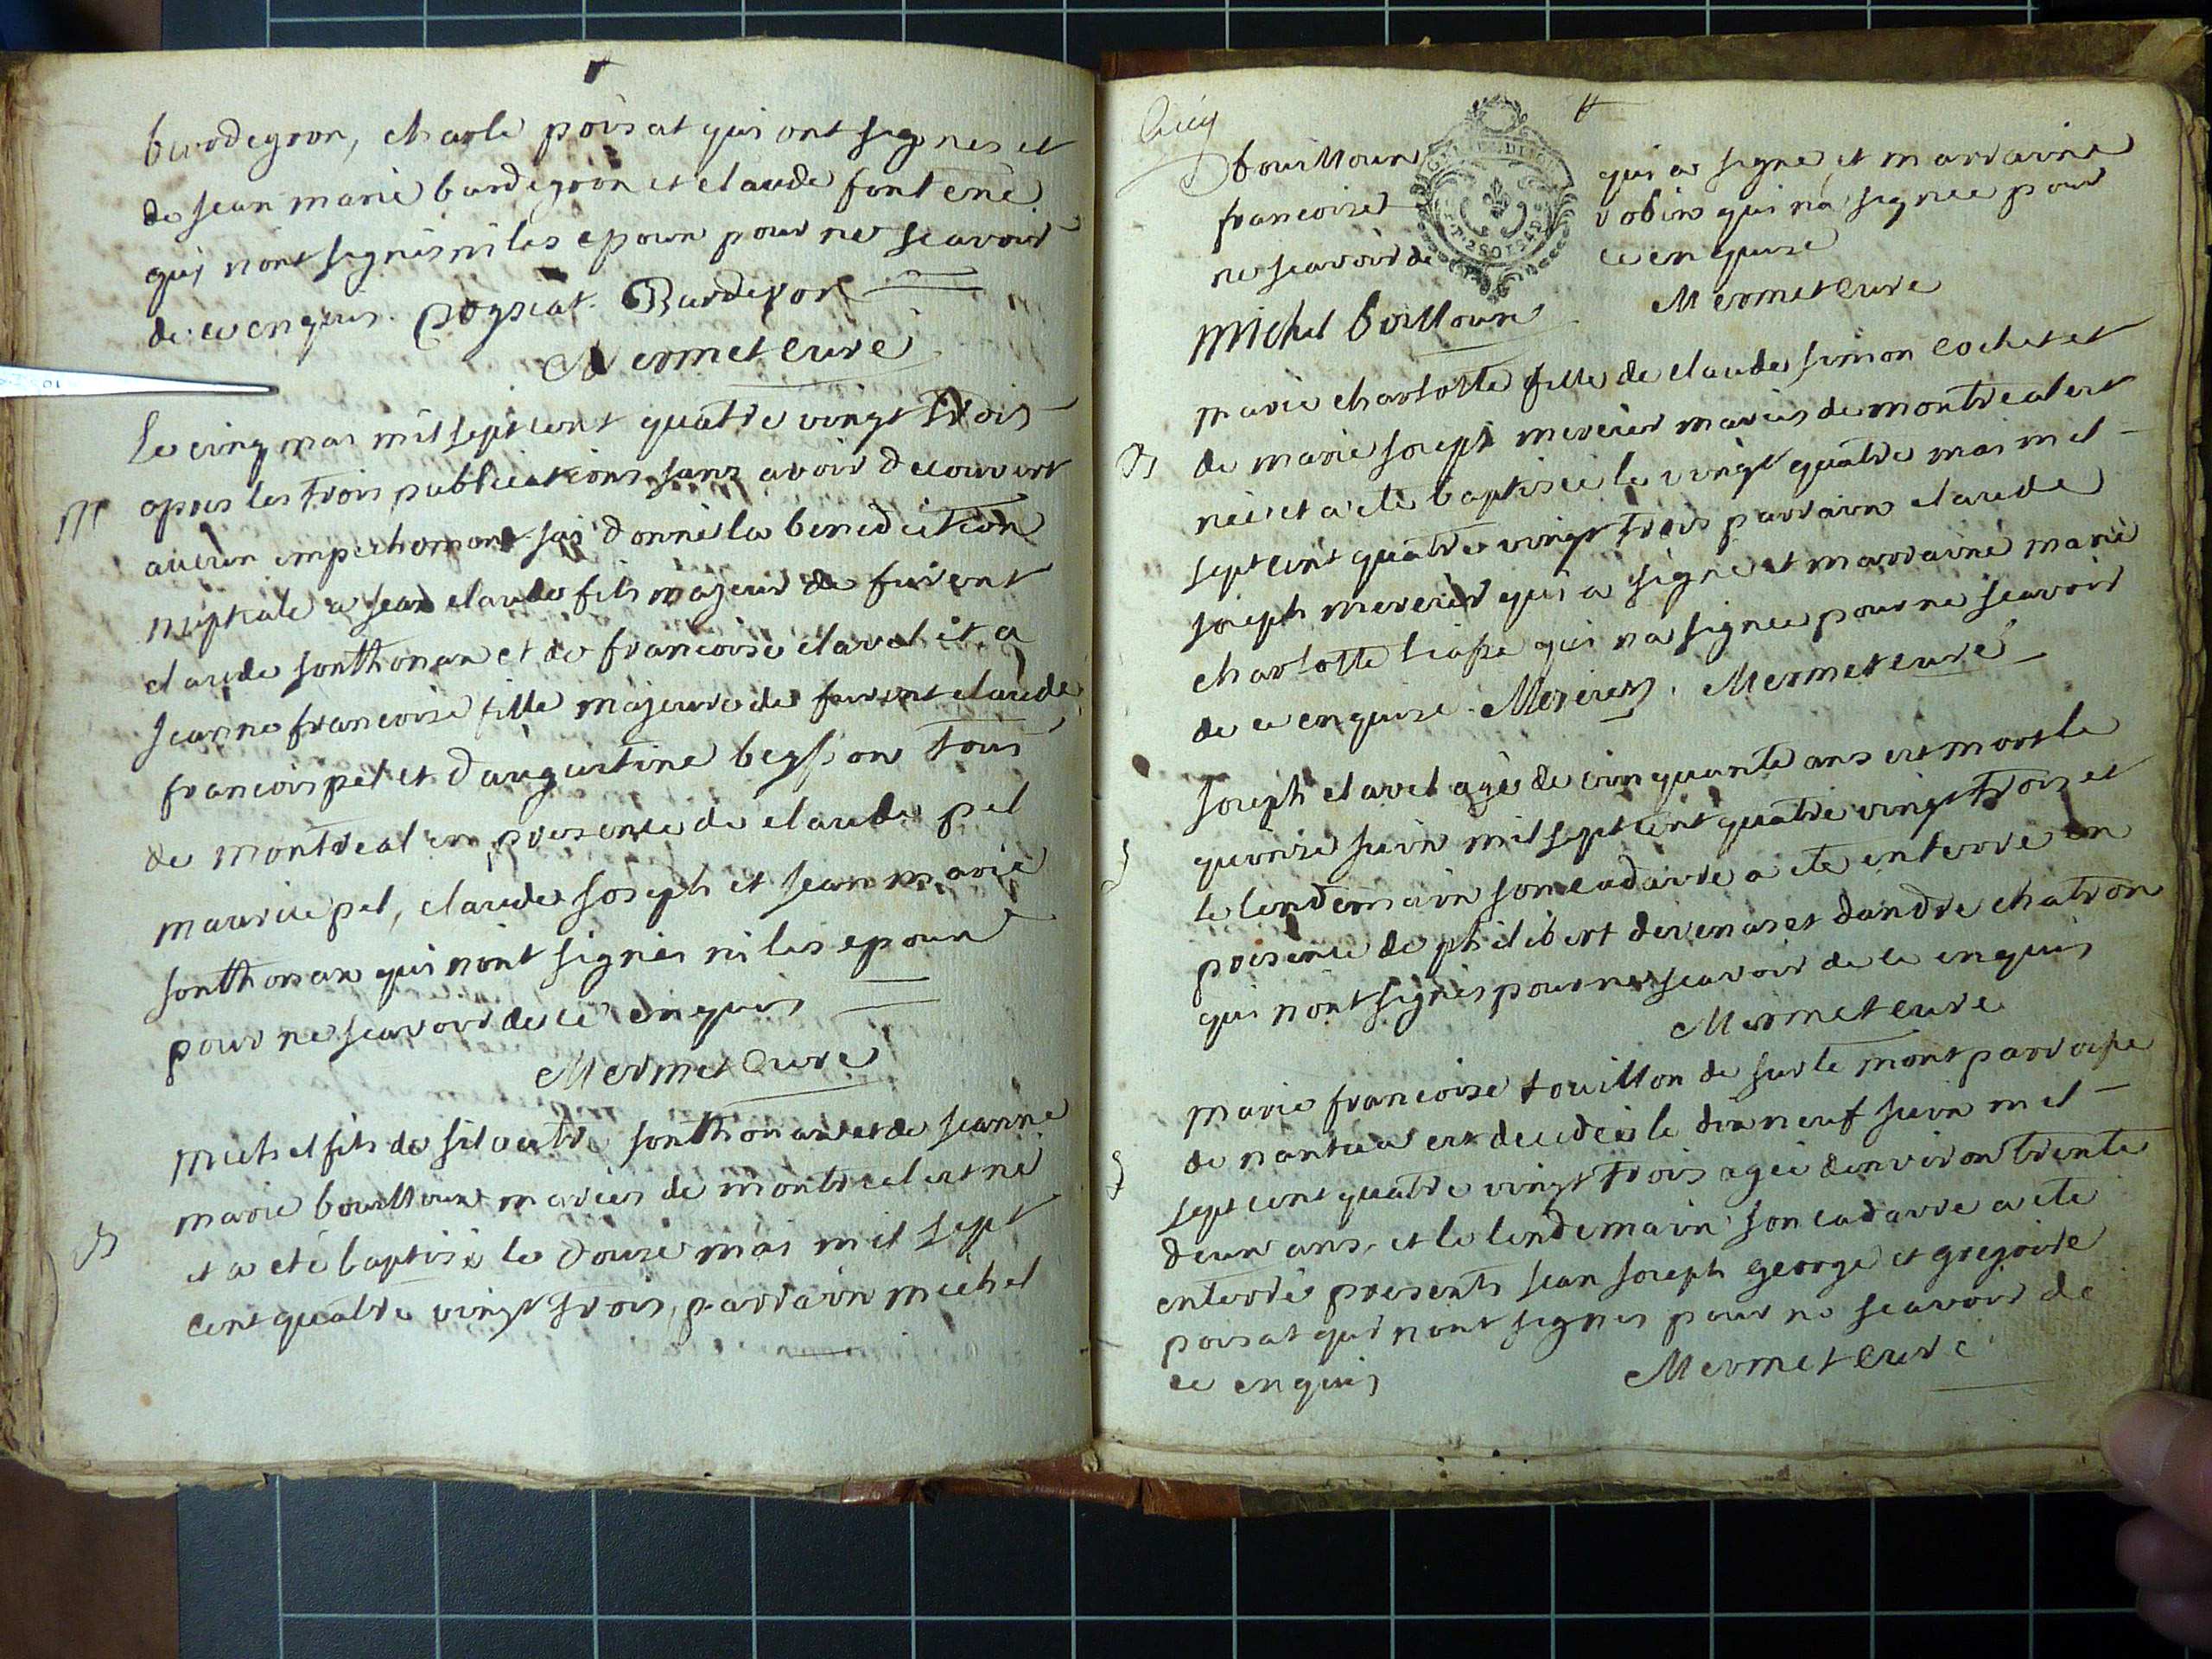 burdeyron, charle poisat qui ont signes et
de jean marie burdeyron et claude fontene
qui nont signés ni les epoux pour ne scavoir
de ce enquis. Poysiat. Burdeyron
Mermet Curé
Le cinq mai mil sept cent quatre vingt trois
M
apres les trois publications sans avoir decouvert
aucun empechement jai donné la benediction
nuptiale a jean claude fils majeur de furent
claude sonthonax et de francoise clavel et a
jeanne francoise fille majeure de furent claude
francois pel et daugustine beysson tous
de montreal en presence de claude pel
maurice pel, claude joseph et jean marie
sonthonax qui nont signés ni les epoux
pour ne scavoir de ce enquis
Mermet Curé
Michel fils de silvestre sonthonax et de jeanne
marie bouilloux mariés de montreal est né
B
et a eté baptisé le douze mai mil sept
cent quatre vingt trois, parrain michel
bouilloux qui a signé et marraine
francoise robin qui na signée pour
ne scavoir de ce enquise
Michel boilloux Mermet Curé
marie charlotte fille de claude simon cochet et
B
de marie joseph mercier mariés de montreal est
née et a eté baptisée le vingt quatre mai mil
sept cent quatre vingt trois parrain claude
joseph mercier qui a signé et marraine marie
charlotte qui na signée pour ne scavoir
de ce enquise. Mercier. Mermet curé
Joseph clavel agé de cinquante ans est mort le
quinze juin mil sept cent quatre vingt trois et
S
le lendemain son cadavre a eté enterré en
presence de philibert devenas et dandre chatron
qui nont signés pour ne scavoir de ce enquis
Mermet curé
Marie francoise touillon de sur le mont parroisse
de nantua est decedée le dix neuf juin mil
S
sept cent quatre vingt trois agée denviron trente
deux ans, et le lendemain son cadavre a eté
enterré presents jean joseph george et gregoire
poisat qui nont signés pour ne scavoir de
ce enquis Mermet curé